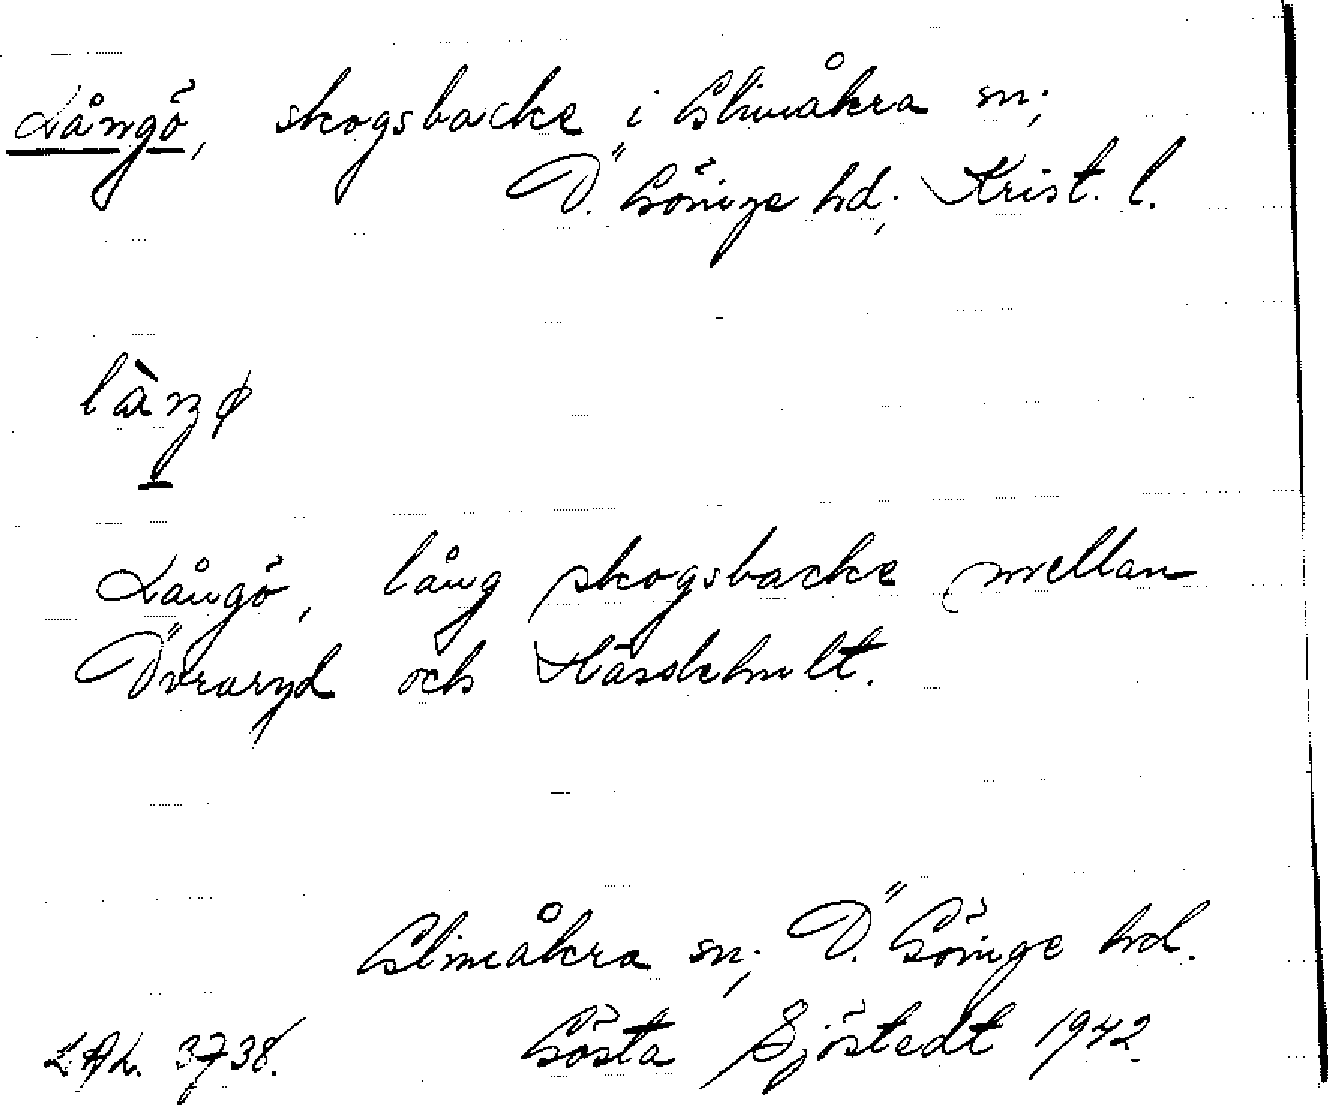 Långö, skogsbacke i Glimåkra sn;
Ö. Göinge hd; Krist. l.
Långö, lång skogsbacke mellan
Övraryd och Hässlehult.
Glimåkra sn; Ö. Göinge hd.
L.A.L. 3738. Gösta Sjöstedt 1942.